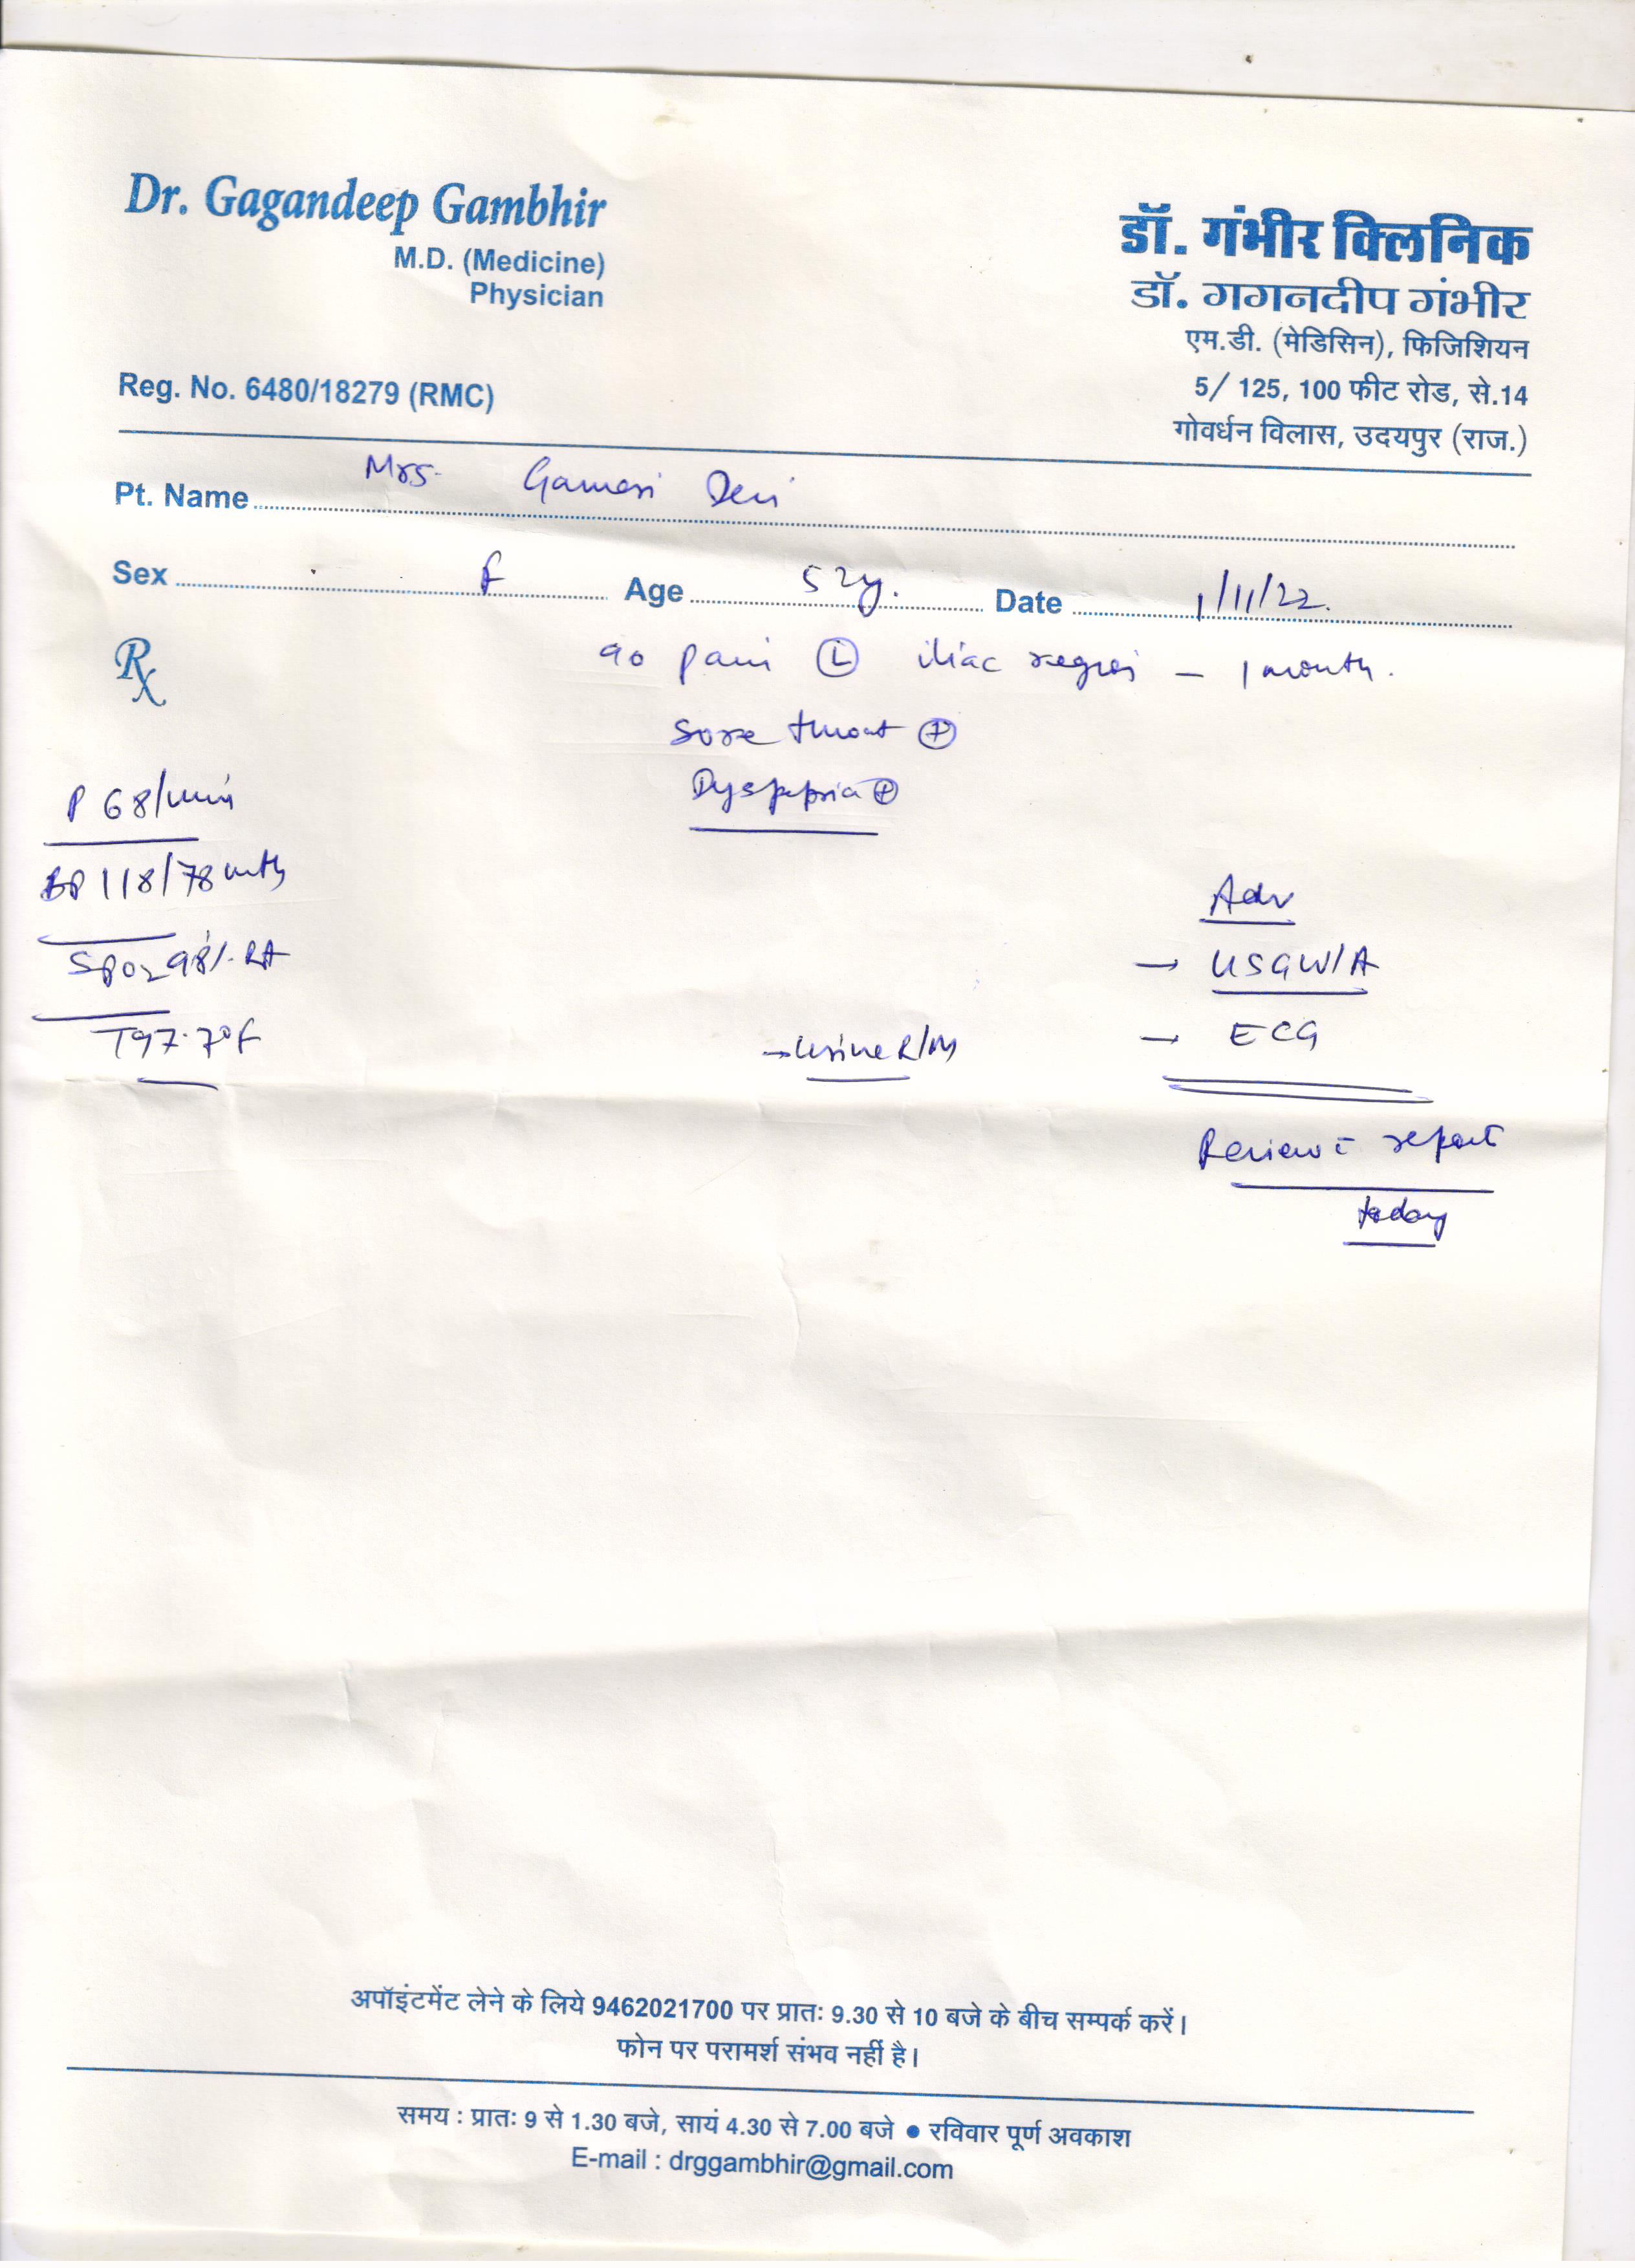 Dr. Gagandeep Gambhir
M.D. (Medicine)
Physician
Reg. No. 6480/18279 (RMC)
डॉ. गंभीर क्लिनिक
डॉ. गगनदीप गंभीर
एम.डी. (मेडिसिन), फिजिशियन
5/ 125, 100 फीट रोड, से.14
गोवर्धन विलास, उदयपुर (राज.)
Pt. Name Mrs. Devi
Sex F Age 52y. Date 1/11/22.
Rx
pain Ⓛ iliac region – 1 month.
Sore throat ⊕
Dyspepsia ⊕
P 68/min
BP 118/78
SPO2 98% RA
T 97.7°F
Adv
→ USG W/A
→ Urine R/M
→ ECG
Review c̄ report
today
अपॉइंटमेंट लेने के लिये 9462021700 पर प्रातः 9.30 से 10 बजे के बीच सम्पर्क करें।
फोन पर परामर्श संभव नहीं है।
समय : प्रातः 9 से 1.30 बजे, सायं 4.30 से 7.00 बजे ● रविवार पूर्ण अवकाश
E-mail : drggambhir@gmail.com